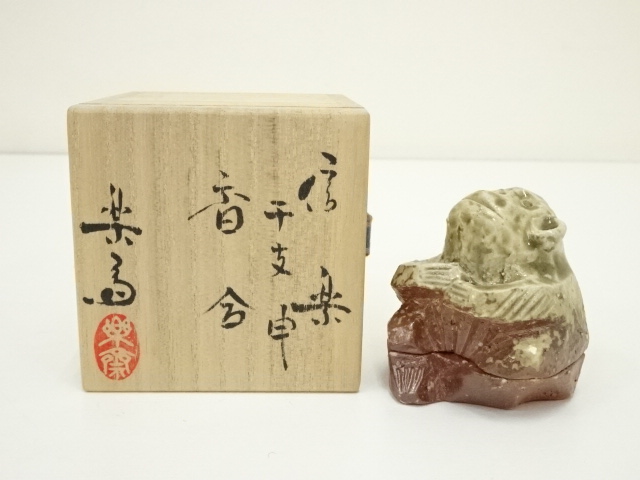 信楽
干支申
香合
楽斎
樂齋